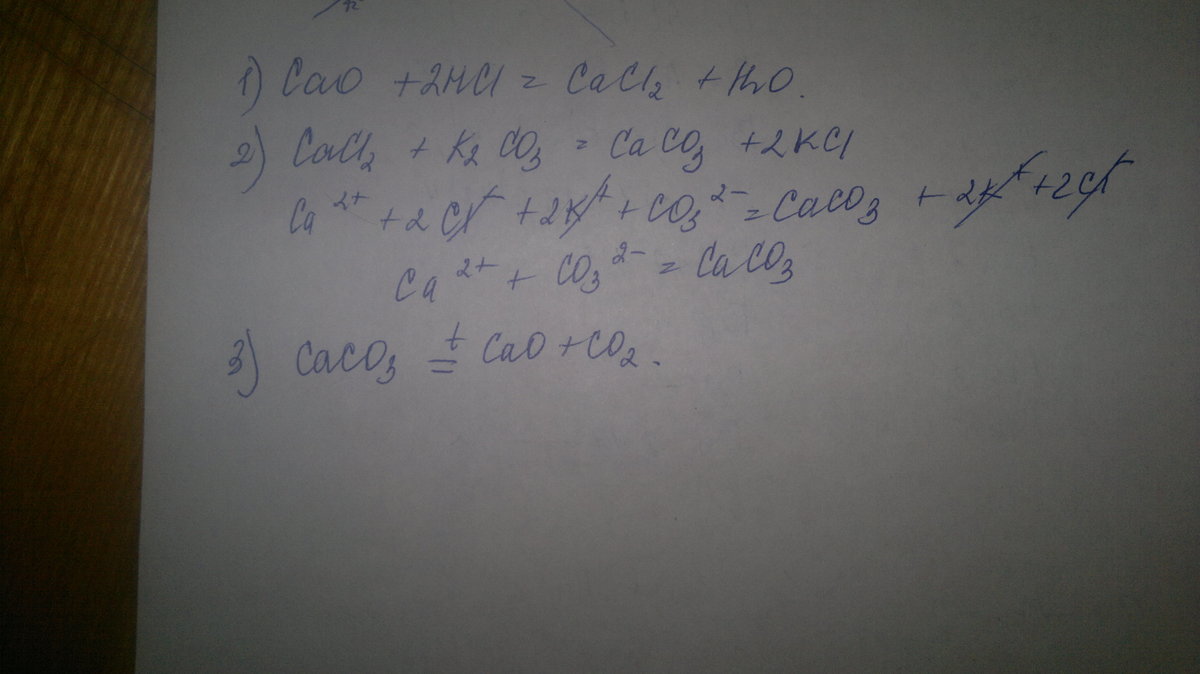 1) CaO + 2HCl = CaCl₂ + H₂O.
2) CaCl₂ + K₂CO₃ = CaCO₃ + 2KCl
Ca²⁺ + 2Cl⁻ + 2K⁺ + CO₃²⁻ = CaCO₃ + 2K⁺ + 2Cl⁻
Ca²⁺ + CO₃²⁻ = CaCO₃
3) CaCO₃ =ᵗ CaO + CO₂.